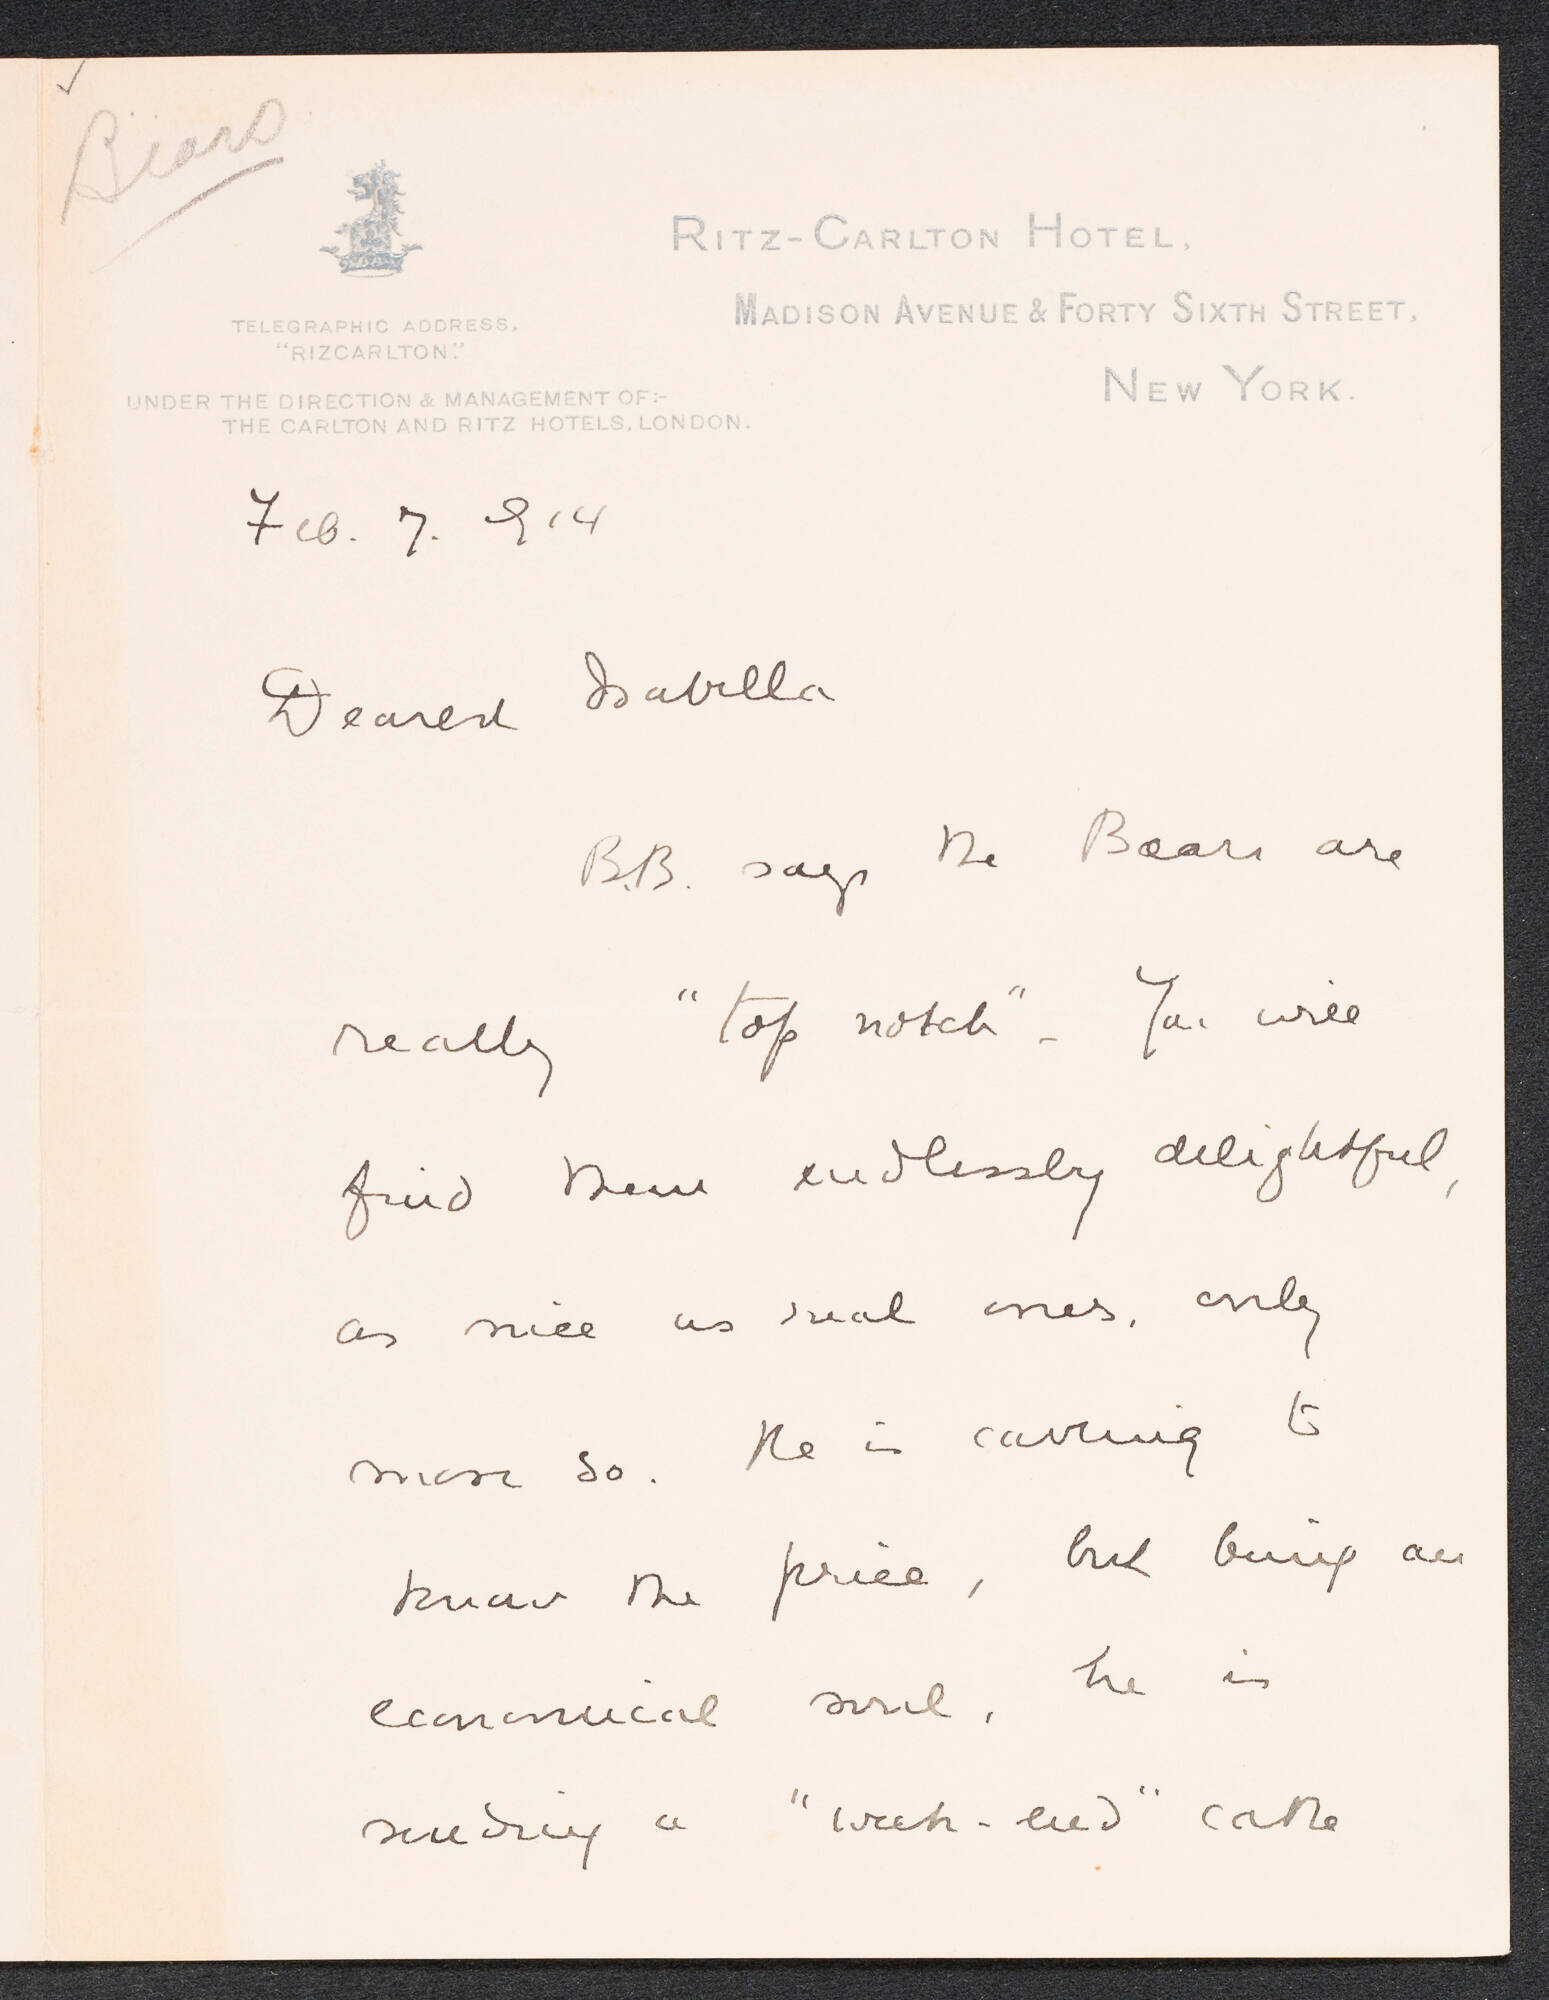 Bears
RITZ-CARLTON HOTEL,
MADISON AVENUE & FORTY SIXTH STREET,
NEW YORK.
TELEGRAPHIC ADDRESS,
"RIZCARLTON."
UNDER THE DIRECTION & MANAGEMENT OF:-
THE CARLTON AND RITZ HOTELS, LONDON.
Feb. 7. 914
Dearest Isabella
B.B. says the Bears are
really "top notch" - You will
find them endlessly delightful,
as nice as real ones, only
more so. He is cabling to
know the price, but being an
economical soul, he is
sending a "week-end" cable